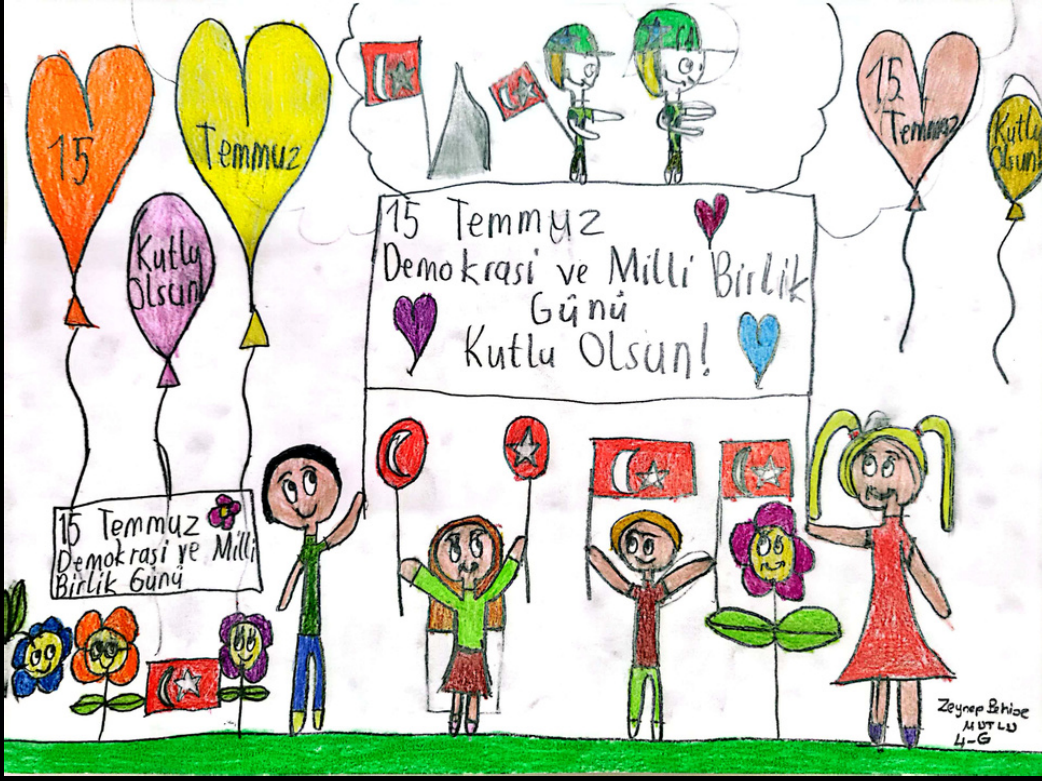 15
Temmuz
Kutlu
Olsun!
15
Temmuz
Kutlu
Olsun!
15 Temmuz
Demokrasi ve Milli Birlik
Günü
Kutlu Olsun!
15 Temmuz
Demokrasi ve Milli
Birlik Günü
Zeynep Behice
MUTLU
4-G